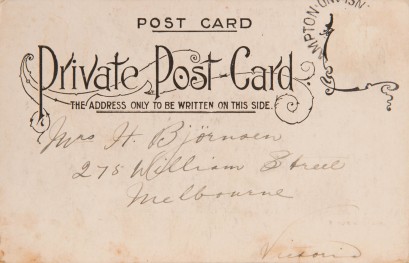 POST CARD
AMPTON·ON·ISN
Private Post-Card.
THE ADDRESS ONLY TO BE WRITTEN ON THIS SIDE.
Mrs H. Björnsen
275 William Street
Melbourne
Victoria